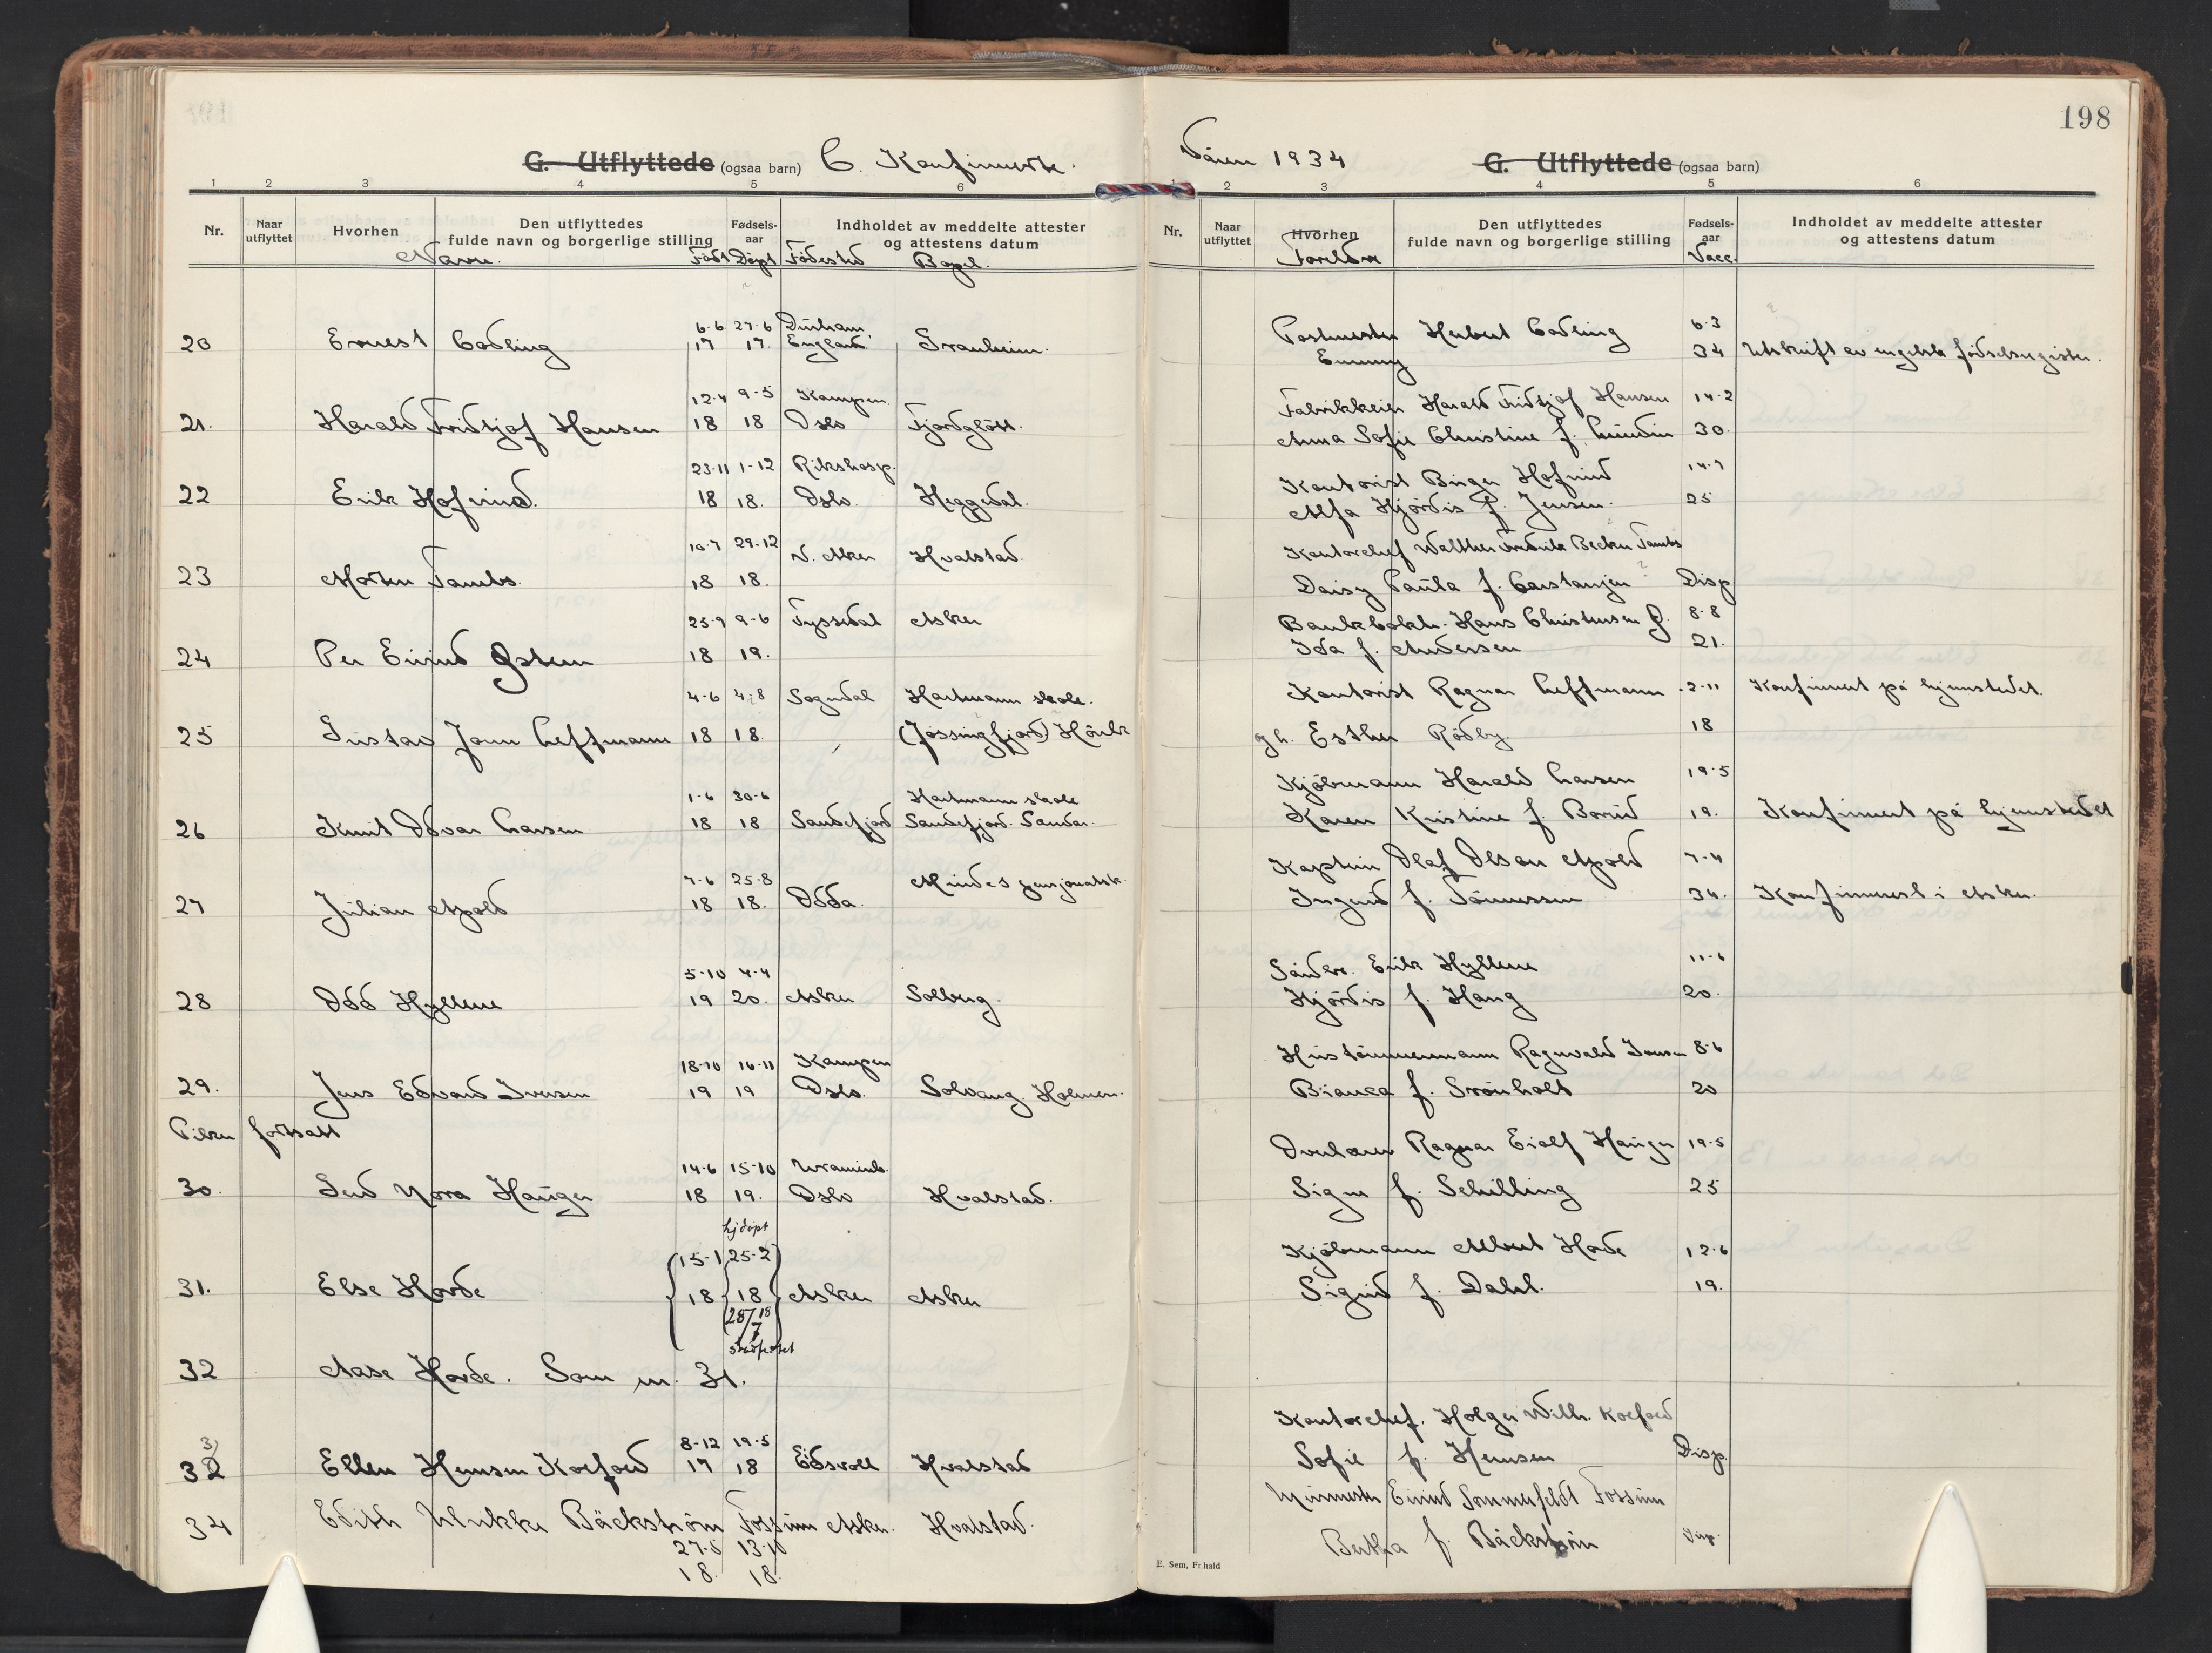 198
G. Utflyttede (ogsaa barn) C. Konfirmerte.
1 2 3 4 5 6
Nr. Naar utflyttet Hvorhen Den utflyttedes fulde navn og borgerlige stilling Fødsels-aar Indholdet av meddelte attester og attestens datum
Navn. Født Døpt Fødested Bopel.
6-6 27-6 Durham
20 Ernest Codling 17 17. England Granheim.
12-4 9-5 Kampen.
21. Harald Fridtjof Hansen 18 18 Oslo Fjordgløtt.
23-11 1-12 Rikshosp.
22 Erik Hofmid. 18 18. Oslo. Heggedal.
10-7 29-12 V. Aker Hvalstad.
23 Morten Tambs. 18 18.
25-9 9-6 Tyssedal Asker
24 Per Eivind Østern 18 19.
4-6 4-8 Sogndal Hartmann skole.
25 Gustav Jonn Leffmann 18 18. (Jøssingfjord)
1-6 30-6 Hartmann skole
26 Knut Odvar Larsen 18 18 Sandefjord Sandefjord. Sandar.
7-6 25-8 Mindes pensjonatsk.
27 Julian Apold 18 18. Odda.
5-10 4-4
28 Odd Hyllene 19 20. Asker Solberg.
18-10 16-11 Kampen
29. Jens Edvard Iversen 19 19 Oslo. Solvang. Holmen.
Piker fortsatt
14-6 15-10 Uranienb.
30. Gerd Nora Hauger 18 19. Oslo Hvalstad.
hjdøpt
15-1 25-2
31. Else Horde 18 18 Asker Asker
28/7 18
stadfestet
32 Aase Horde. Som nr. 31.
8-12 19-5
33 Ellen Hemsen Koefoed 17 18 Eidsvoll Hvalstad
34 Edith Ulrikke Bäckstrøm Fossum Asker. Hvalstad.
27-5 13-10
18. 18.
Våren 1934 G. Utflyttede (ogsaa barn)
1 2 3 4 5 6
Nr. Naar utflyttet Hvorhen Den utflyttedes fulde navn og borgerlige stilling Fødsels-aar Indholdet av meddelte attester og attestens datum
Foreldre Vacc.
Postmester Herbert Codling 6-3
Emmy 34 Utskrift av engelsk fødselsregister.
Fabrikkeier Harald Fridtjof Hansen 14-2
Anna Sofie Christine f. Lundin 30.
Kontorist Birger Hofmid 14-7
Alfa Hjørdis f. Jensen. 25
Kontorchef Walther Fredrik Becker Tambs
Daisy Paula f. Carstanjen Disp
Bankbokh. Hans Christensen Ø. 8-8
Ida f. Andersen 21.
Kontorist Ragnar Leffmann 2-11 Konfirmert på hjemstedet.
gh. Esther Rødby. 18
Kjøbmann Harald Larsen 19-5
Karen Kristine f. Borud 19. Konfirmert på hjemstedet
Kaptein Olaf Olson Apold 7-4
Ingrid f. Tønnessen 34. Konfirmert i Asker.
Erik Hyllene 11-6
Hjørdis f. Haug 20.
Hustømmermann Ragnvald Iversen 8-6
Bianca f. Grønholt 20
Overlærer Ragnar Eiolf Hauger 19-5
Signe f. Schilling 25
Kjøbmann Albert Horde 12-6
Sigrid f. Dahl. 19.
Kontorchef. Holger Wilh. Koefoed
Sofie f. Hemsen Disp.
Murmester Eivind Sommerfeldt Fossum
Bertha f. Bäckstrøm Disp.
E. Sem, Fr.hald